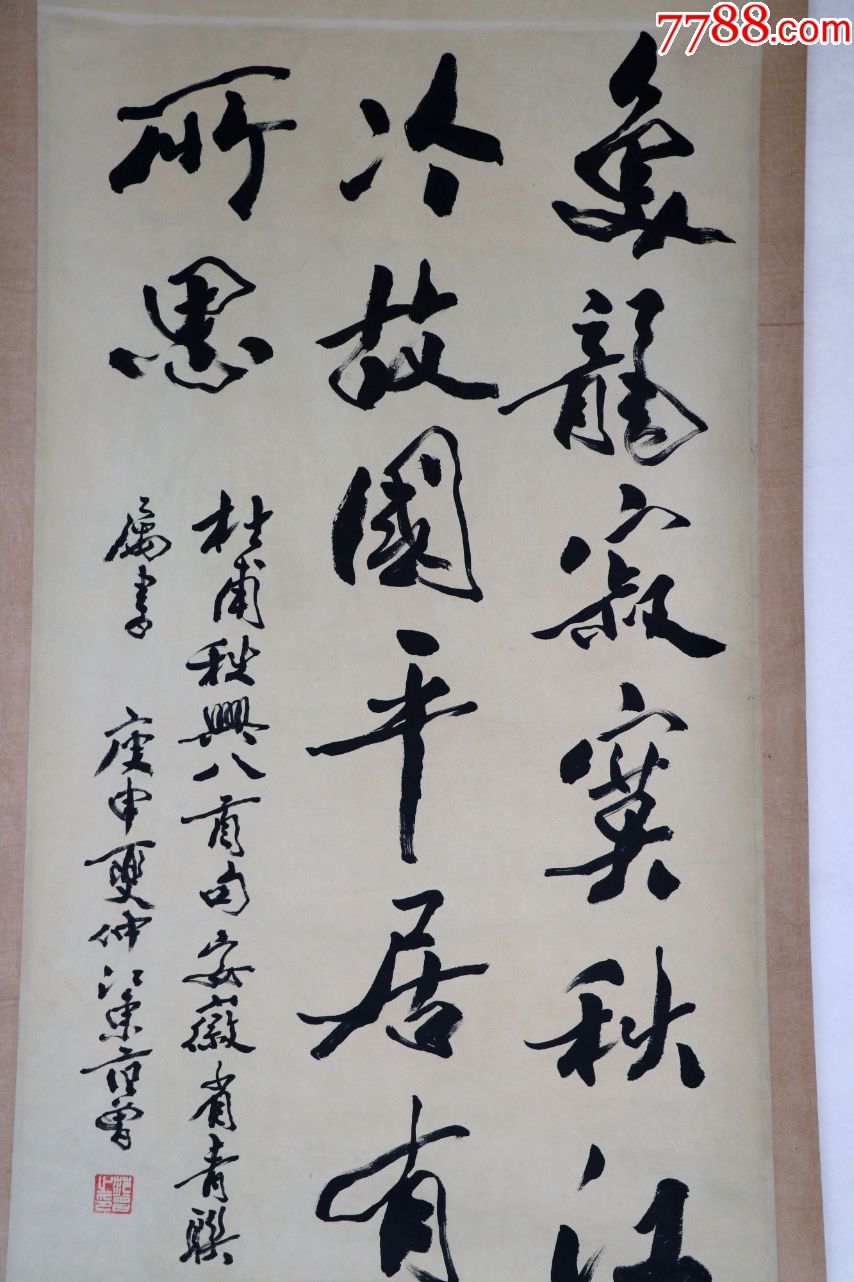 7788.com
魚龍寂寞秋江
冷故國平居有
所思
杜甫秋興八首句安徽省青聯
属書 庚申夏仲江東范曾